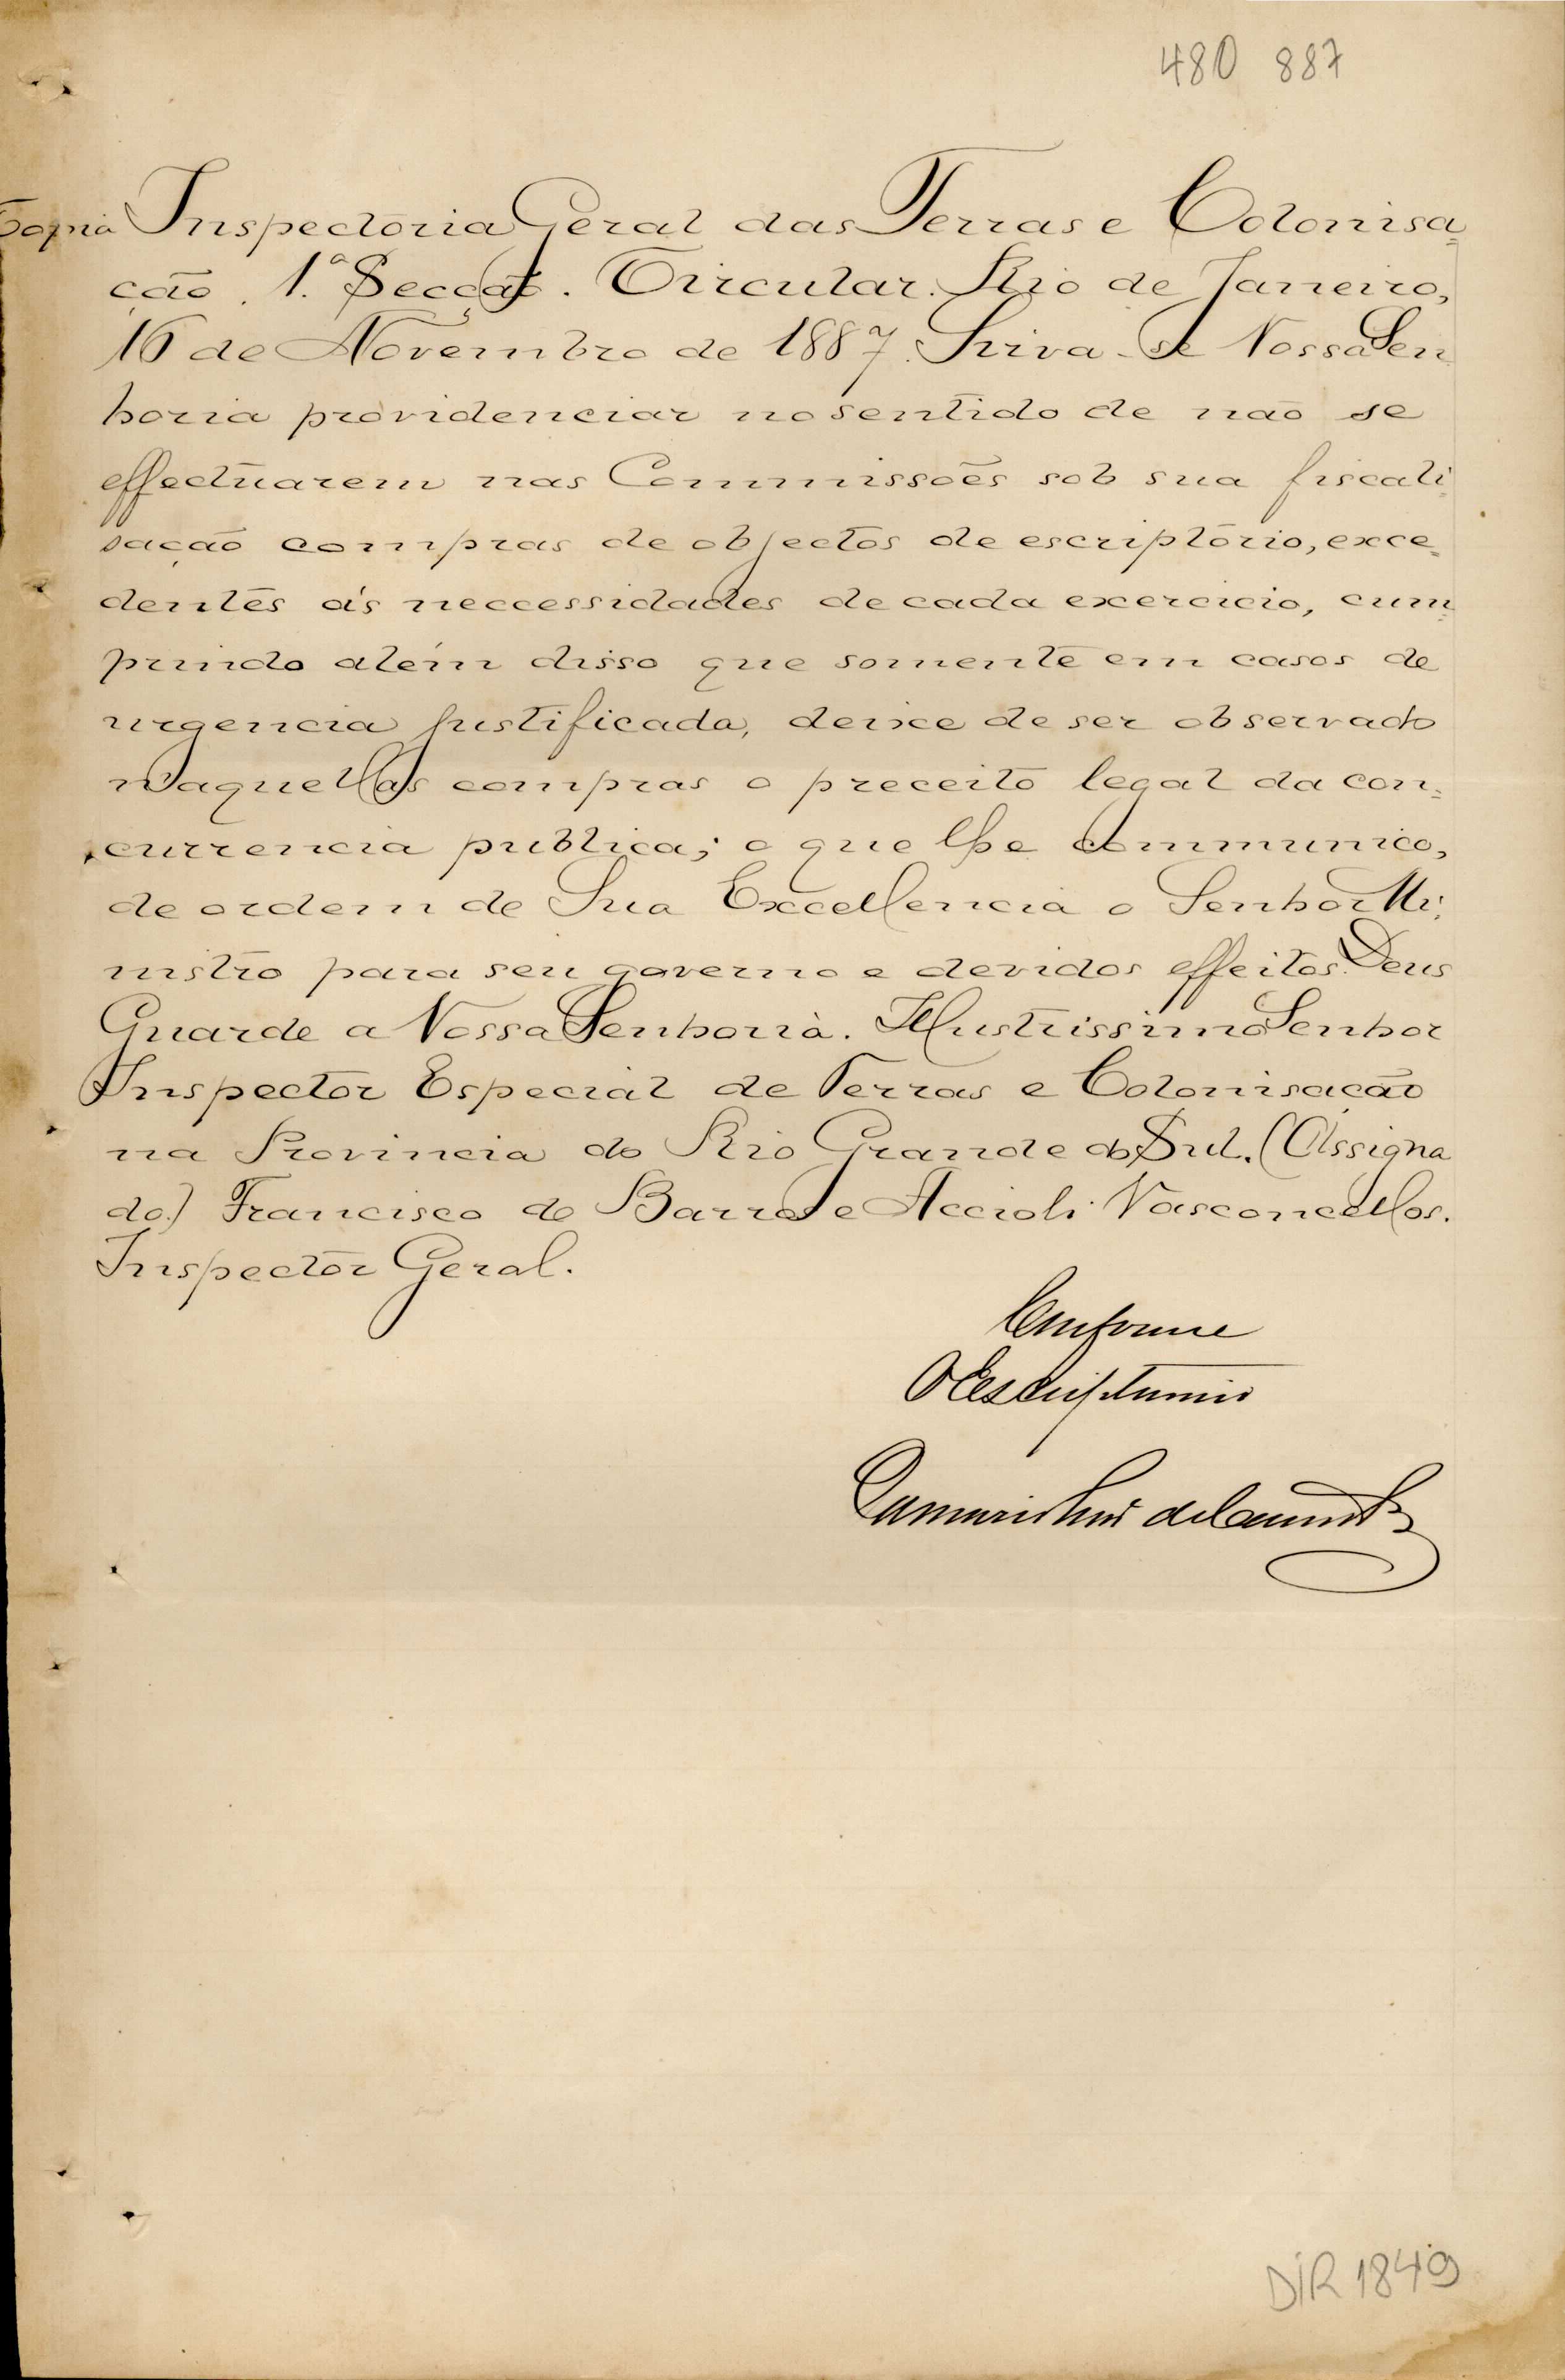 480 887
Copia Inspectoria Geral das Terras e Colonisa-
ção. 1.ª Secção. Circular. Rio de Janeiro,
16 de Novembro de 1887. Sirva-se Vossa Sen
horia providenciar no sentido de não se
effectuarem nas Commissões sob sua fiscali-
sação compras de objectos de escriptorio, exce-
dentes ás neccessidades de cada exercicio, cum-
prindo além disso que somente em casos de
urgencia justificada, deixe de ser observado
n'aquellas compras o preceito legal da con-
currencia publica; o que lhe communico,
de ordem de Sua Excellencia o Senhor Mi-
nistro para seu governo e devidos effeitos. Deus
Guarde a Vossa Senhoria. Illustrissimo Senhor
Inspector Especial de Terras e Colonisação
na Provincia do Rio Grande do Sul. (Assigna
do) Francisco de Barros e Accioli Vasconcellos.
Inspector Geral.
Conforme
O Escripturario
DIR 1849